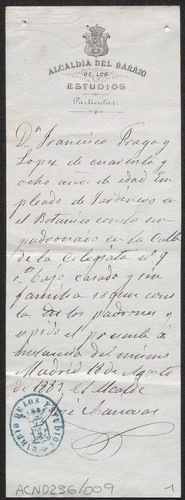 ALCALDIA DEL BARRIO
DE LOS
ESTUDIOS
Particular.
Dn. Francisco Fraga y
Lopez de cuarenta y
ocho años de edad Em
pleado de Jardinero en
el Botanico consta em
padronado en la Calle
de la Colegiata nº 9
bajo casado y sin
familia segun cons
ta de los padrones y
espido el presente á
instancia del mismo
Madrid 18 de Agosto
de 1883 el Alcalde
Canovas
BARRIO DE LOS ESTUDIOS
ACN0236/009
1